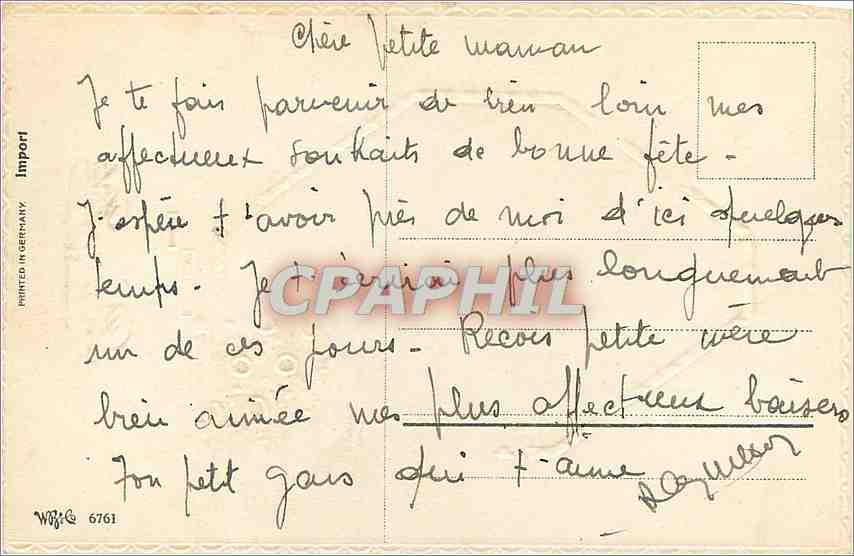 Chère petite maman
Je te fais parvenir de bien loin mes
affectueux souhaits de bonne fête -
J'espère t'avoir près de moi d'ici quelques
temps - Je t'écrirai plus longuement
un de ces jours - Reçois petite mère
bien aimée mes plus affectueux baisers
Ton petit gars qui t'aime
CPAPHIL
PRINTED IN GERMANY. Import
6761